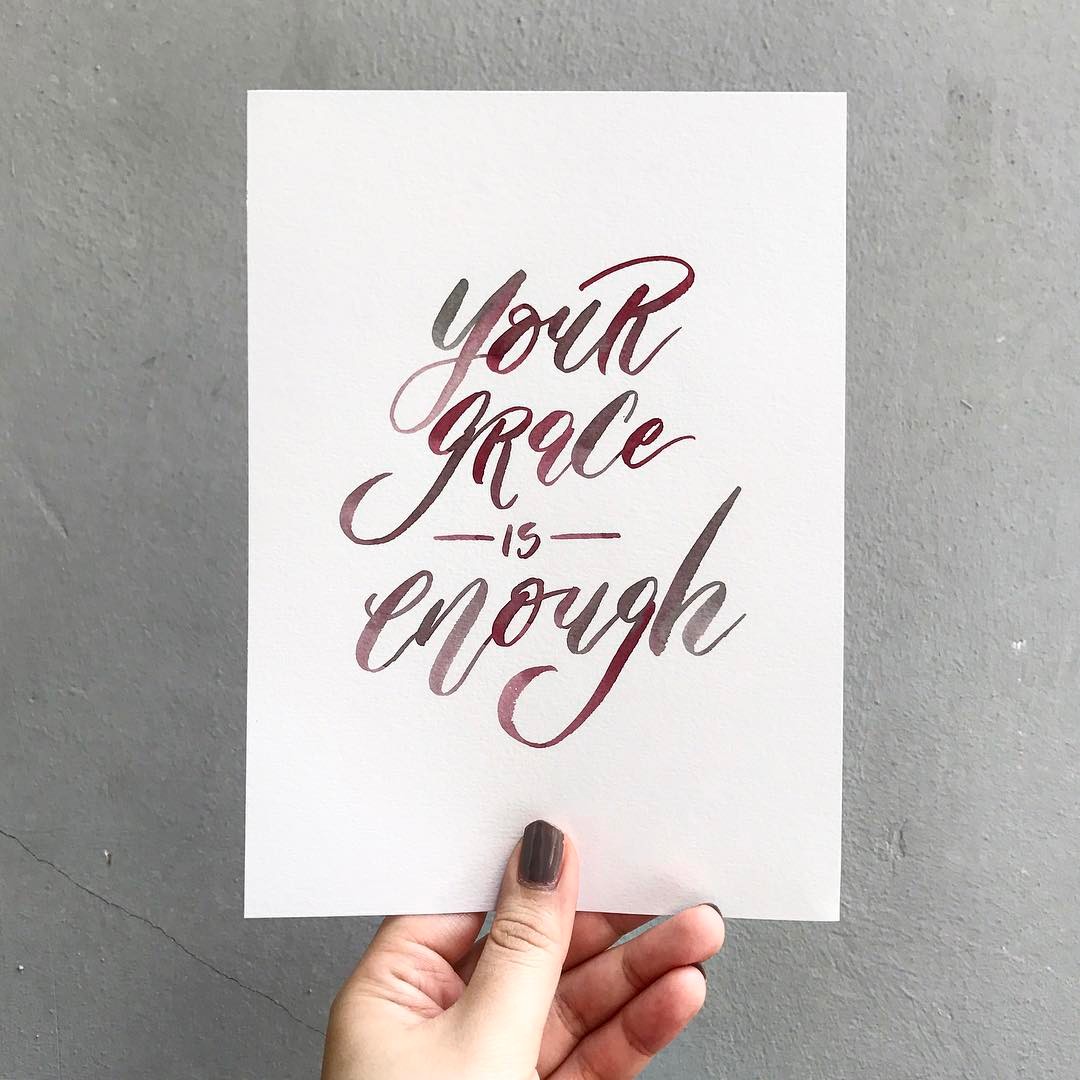 your
grace
— is —
enough